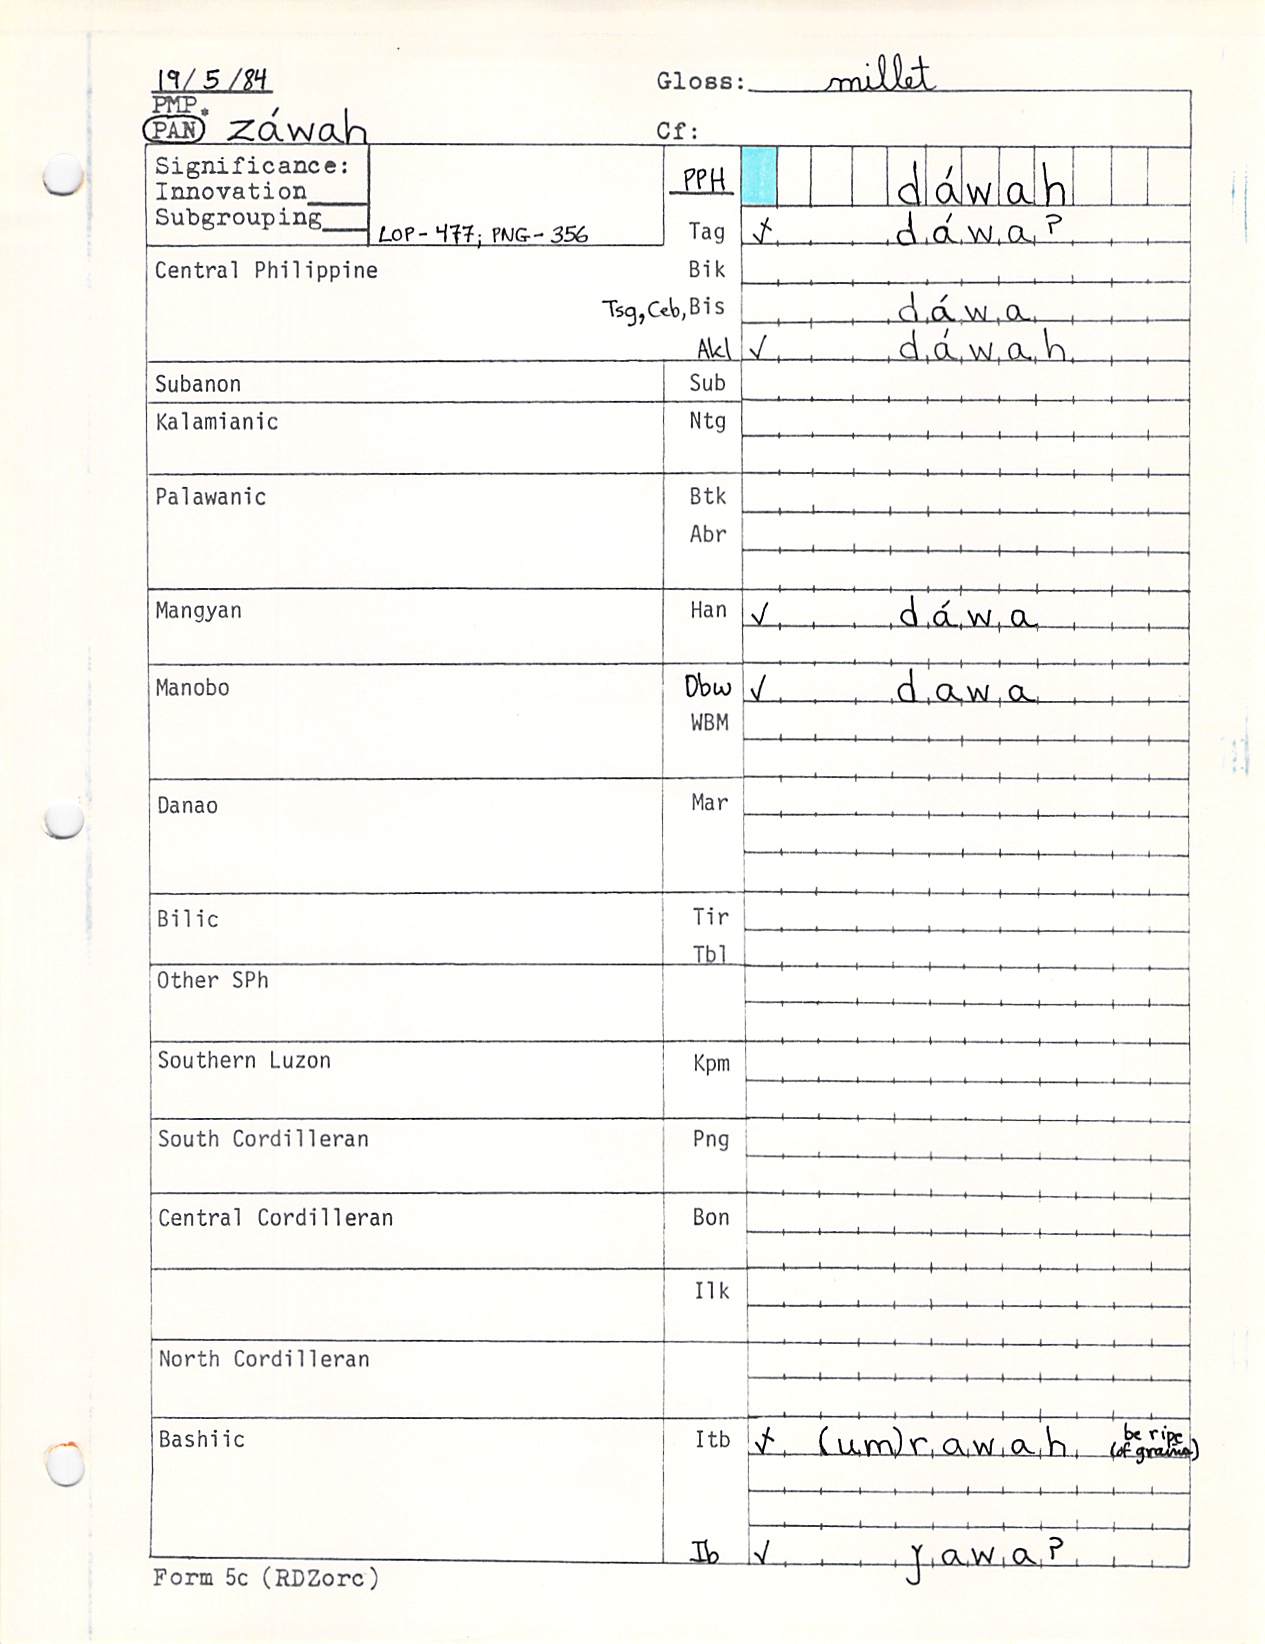 19/5/84
Gloss: millet
PMP *
PAN záwah
Cf:
Significance:
Innovation
Subgrouping
LOP-477; PNG-356
PPH dáwah
Tag ✓ dáwaʔ
Central Philippine Bik
Tsg, Ceb, Bis dáwa
Akl ✓ dáwah
Subanon Sub
Kalamianic Ntg
Palawanic Btk
Abr
Mangyan Han ✓ dáwa
Manobo Dbw ✓ dawa
WBM
Danao Mar
Bilic Tir
Tbl
Other SPh
Southern Luzon Kpm
South Cordilleran Png
Central Cordilleran Bon
Ilk
North Cordilleran
Bashiic Itb (um)rawah be ripe
(of grains)
Ib ✓ yawaʔ
Form 5c (RDZorc)